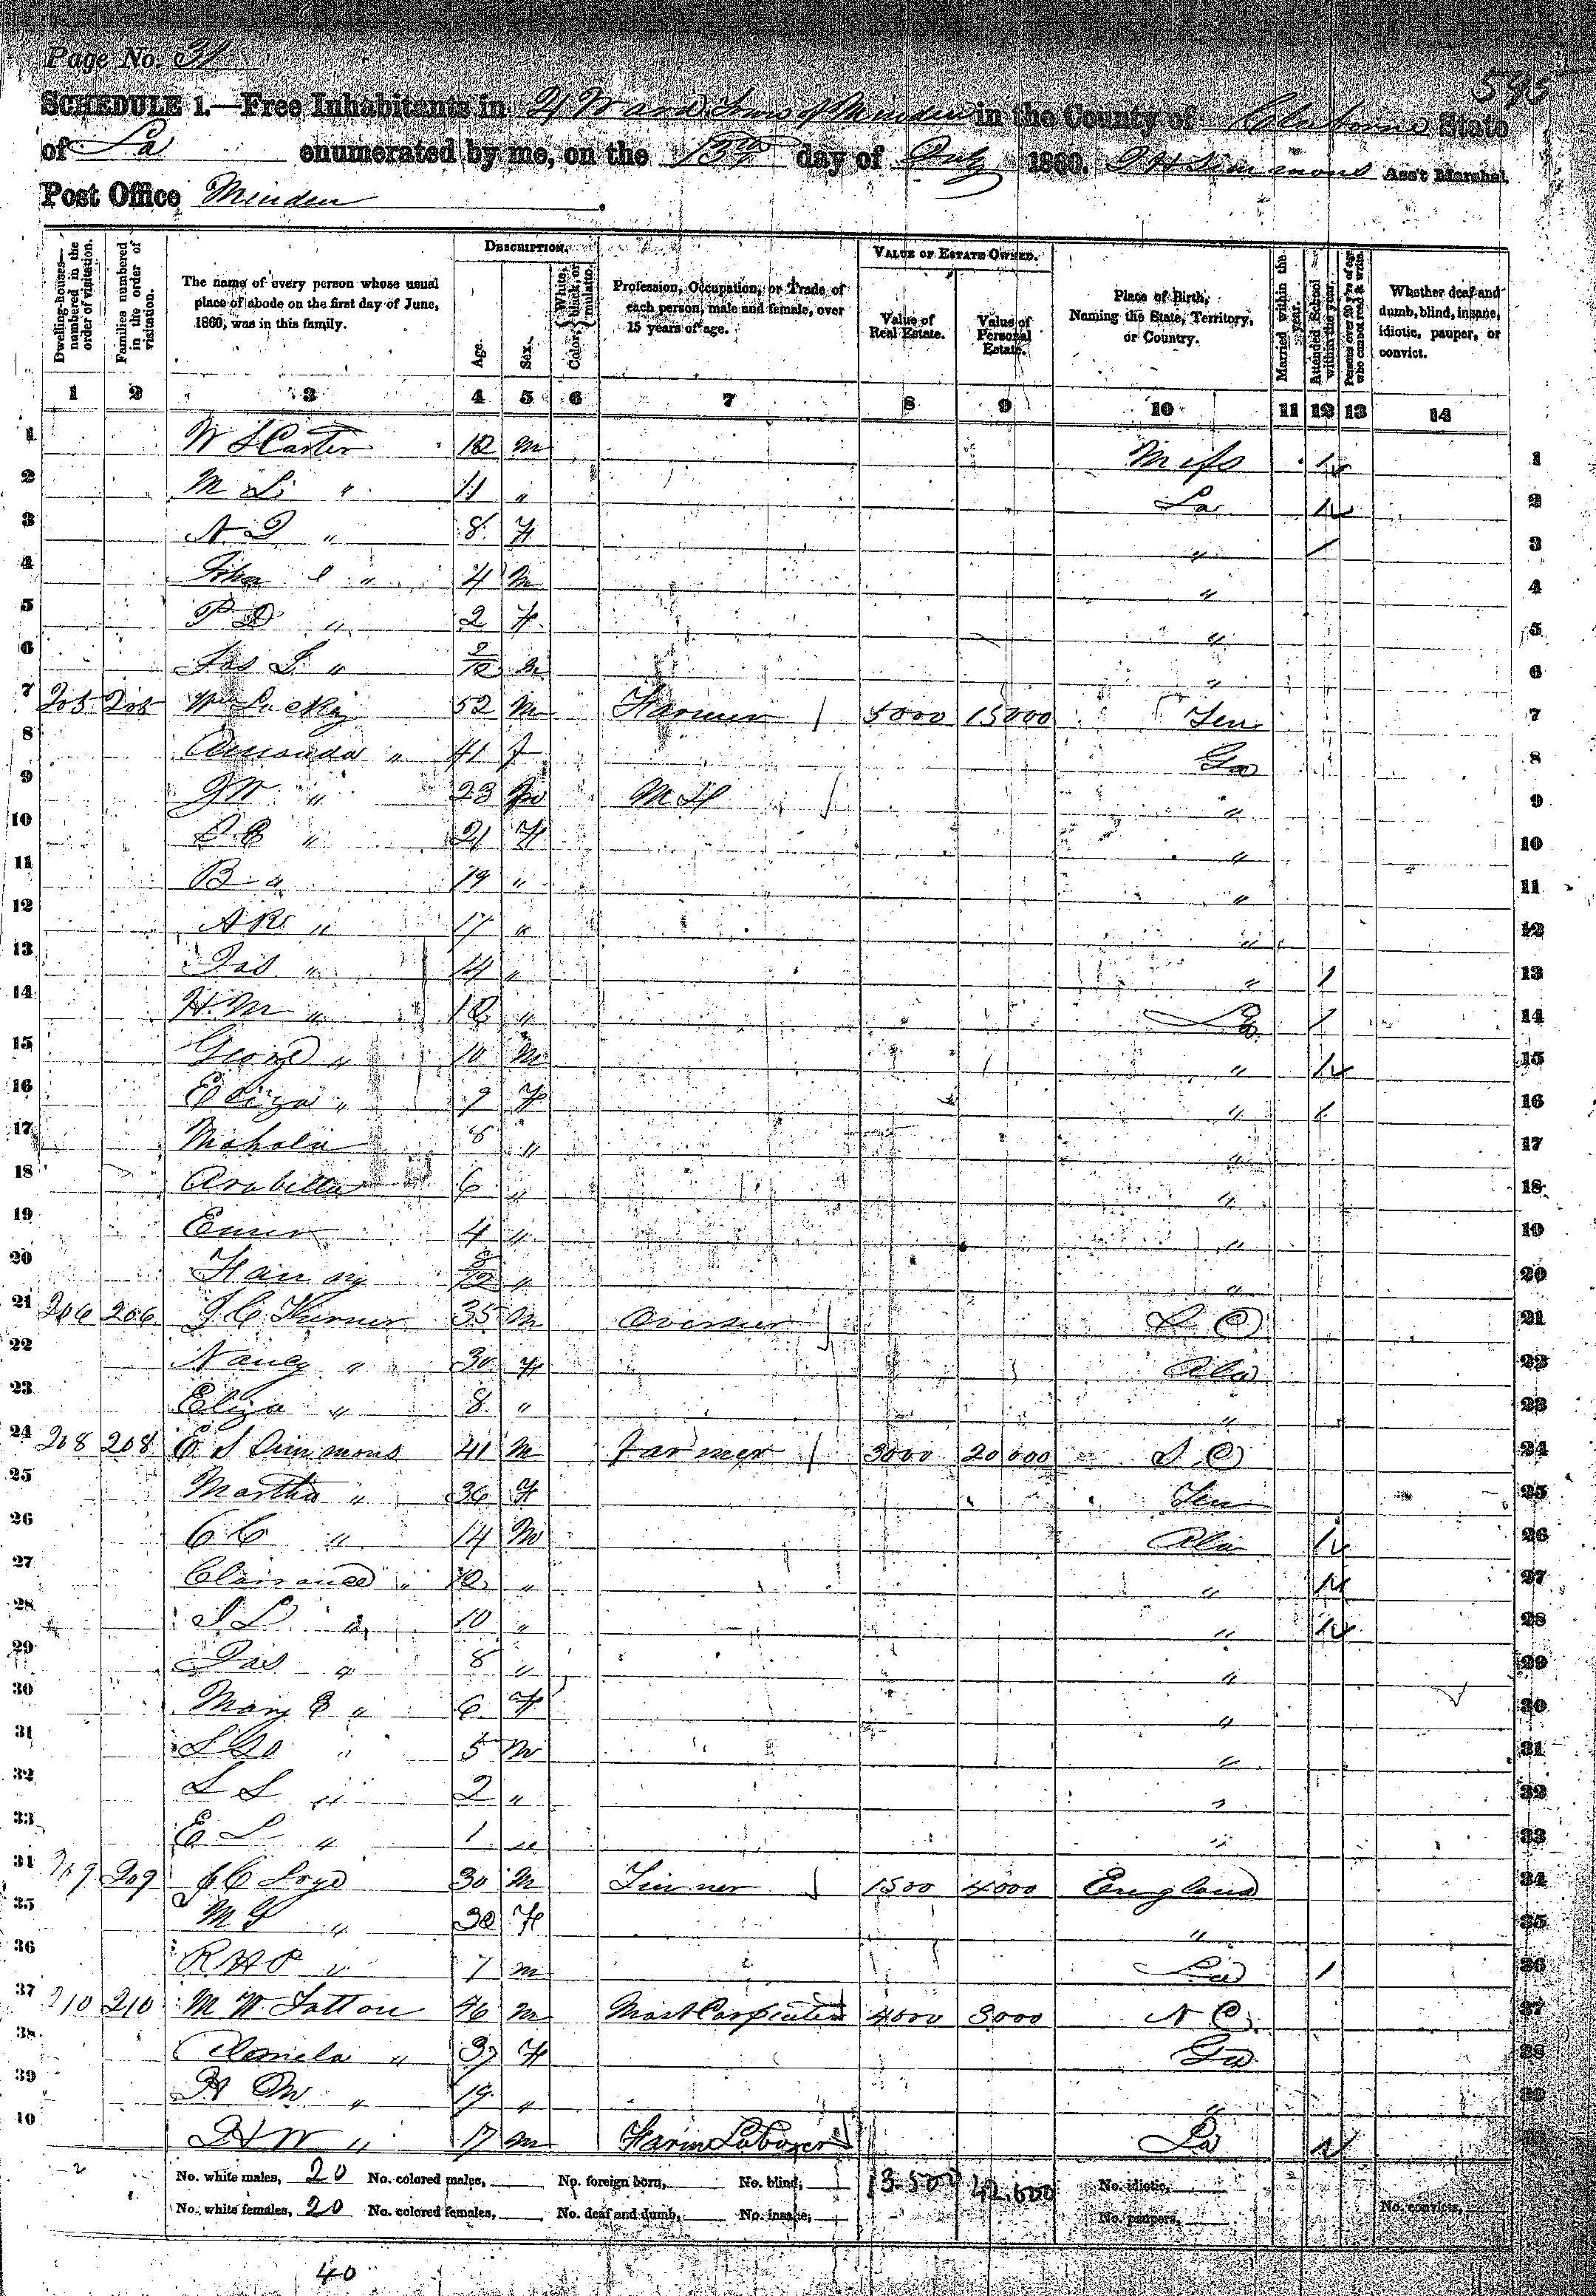 Page No. 31
595
SCHEDULE 1.—Free Inhabitants in 4 Ward Town of Minden in the County of Claiborne State
of La enumerated by me, on the 13th day of July 1860. Simmons Ass't Marshal.
Post Office Minden
Dwelling-houses—numbered in the order of visitation.
Families numbered in the order of visitation.
The name of every person whose usual place of abode on the first day of June, 1860, was in this family.
DESCRIPTION.
Age.
Sex.
Color, White, black, or mulatto.
Profession, Occupation, or Trade of each person, male and female, over 15 years of age.
VALUE OF ESTATE OWNED.
Value of Real Estate.
Value of Personal Estate.
Place of Birth, Naming the State, Territory, or Country.
Married within the year.
Attended School within the year.
Persons over 20 y'rs of age who cannot read & write.
Whether deaf and dumb, blind, insane, idiotic, pauper, or convict.
1 2 3 4 5 6 7 8 9 10 11 12 13 14
1 W S Carter 12 m Miss 1 1
2 M L " 11 " La 1 2
3 " 8 F " / 3
4 John " 4 m " 4
5 P D " 2 F " 5
6 Jas L " 2/12 m " 6
7 205 205 Wm Lucky 52 m Farmer 5000 15000 Ten 7
8 Amanda " 41 f Ga 8
9 " 23 m M D " 9
10 " 21 F " 10
11 B " 19 " " 11
12 A R " 17 " " 12
13 Jas " 14 " " 1 13
14 H. M " 12 " La 1 14
15 George " 10 m " 1 15
16 Eliza " 9 F " 1 16
17 Mahala 8 " " 17
18 Arabella 6 " " 18
19 4 " " 19
20 Fanny 8/12 " " 20
21 206 206 J C Turner 35 m Overseer S C 21
22 Nancy " 30 F Ala 22
23 Eliza " 8 " " 23
24 208 208 E S Simmons 41 m Farmer 3000 20000 S C 24
25 Martha " 36 F Ten 25
26 C C " 14 M Ala 1 26
27 Clairance " 12 " " 1 27
28 S L " 10 " " 1 28
29 Jas " 8 " " 29
30 Mary E " 6 F " 30
31 " 5 m " 31
32 L L " 2 " " 32
33 E L " 1 " " 33
34 209 209 J C Loyd 30 M Tinner 1500 4000 England 34
35 M " 30 F " 35
36 R H P " 7 m La 1 36
37 210 210 M W Tatton 46 m Mast Carpenter 4000 3000 N C 37
38 " 37 F Ga 38
39 H M " 19 " " 39
40 H W " 17 m Farm Laborer La 1
No. white males, 20 No. colored males, No. foreign born, No. blind, 13.500 42.000 No. idiotic,
No. white females, 20 No. colored females, No. deaf and dumb, No. insane, No. paupers, No. convicts,
40